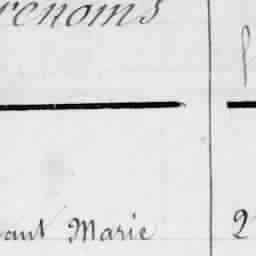 rénoms
ant Marie 2